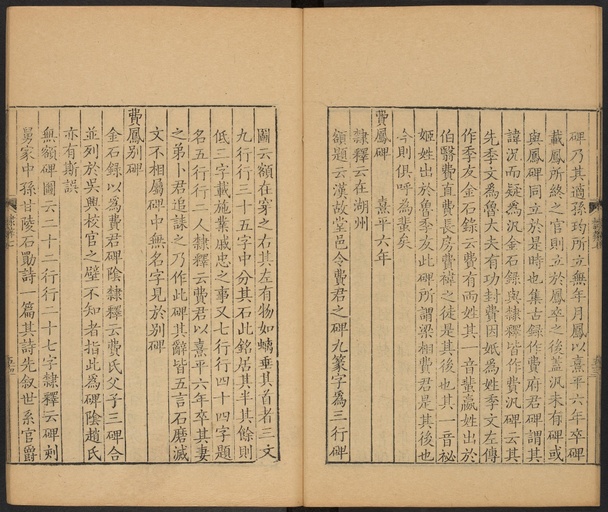 碑乃其適孫玓所立無年月鳳以熹平六年卒碑
載鳳所終之官則立於鳳卒之後蓋汎未有碑或
與鳳碑同立於是時也集古錄作費府君碑謂其
諱汎而疑為沉金石錄與隸釋皆作費汎碑云其
先季文為魯大夫有功封費因㠯為姓季文左傳
作季友金石錄云費有兩姓其一音蜚嬴姓出於
伯翳費直費長房費禕之徒是其後也其一音祕
姬姓出於魯季友此碑所謂梁相費君是其後也
今則俱呼為蜚矣
費鳳碑 熹平六年
隸釋云在湖州
額題云漢故堂邑令費君之碑九篆字為三行碑
圖云額在穿之右其左有物如螭垂其首者三文
九行行三十五字中分其石此銘居其半其餘則
低三字載施業戚忠之事又七行行四十四字題
名五行行二人隸釋云費君以熹平六年卒其妻
之弟卜君追誄之乃作此碑其辭皆五言石磨滅
文不相屬碑中無名字見於別碑
費鳳別碑
金石錄以為費君碑陰隸釋云費氏父子三碑合
並列於吳興校官之壁不知者指此為碑陰趙氏
亦有斯誤
無額碑圖云二十二行行二十七字隸釋云碑刻
舅家中孫甘陵石勛詩一篇其詩先敘世系官爵